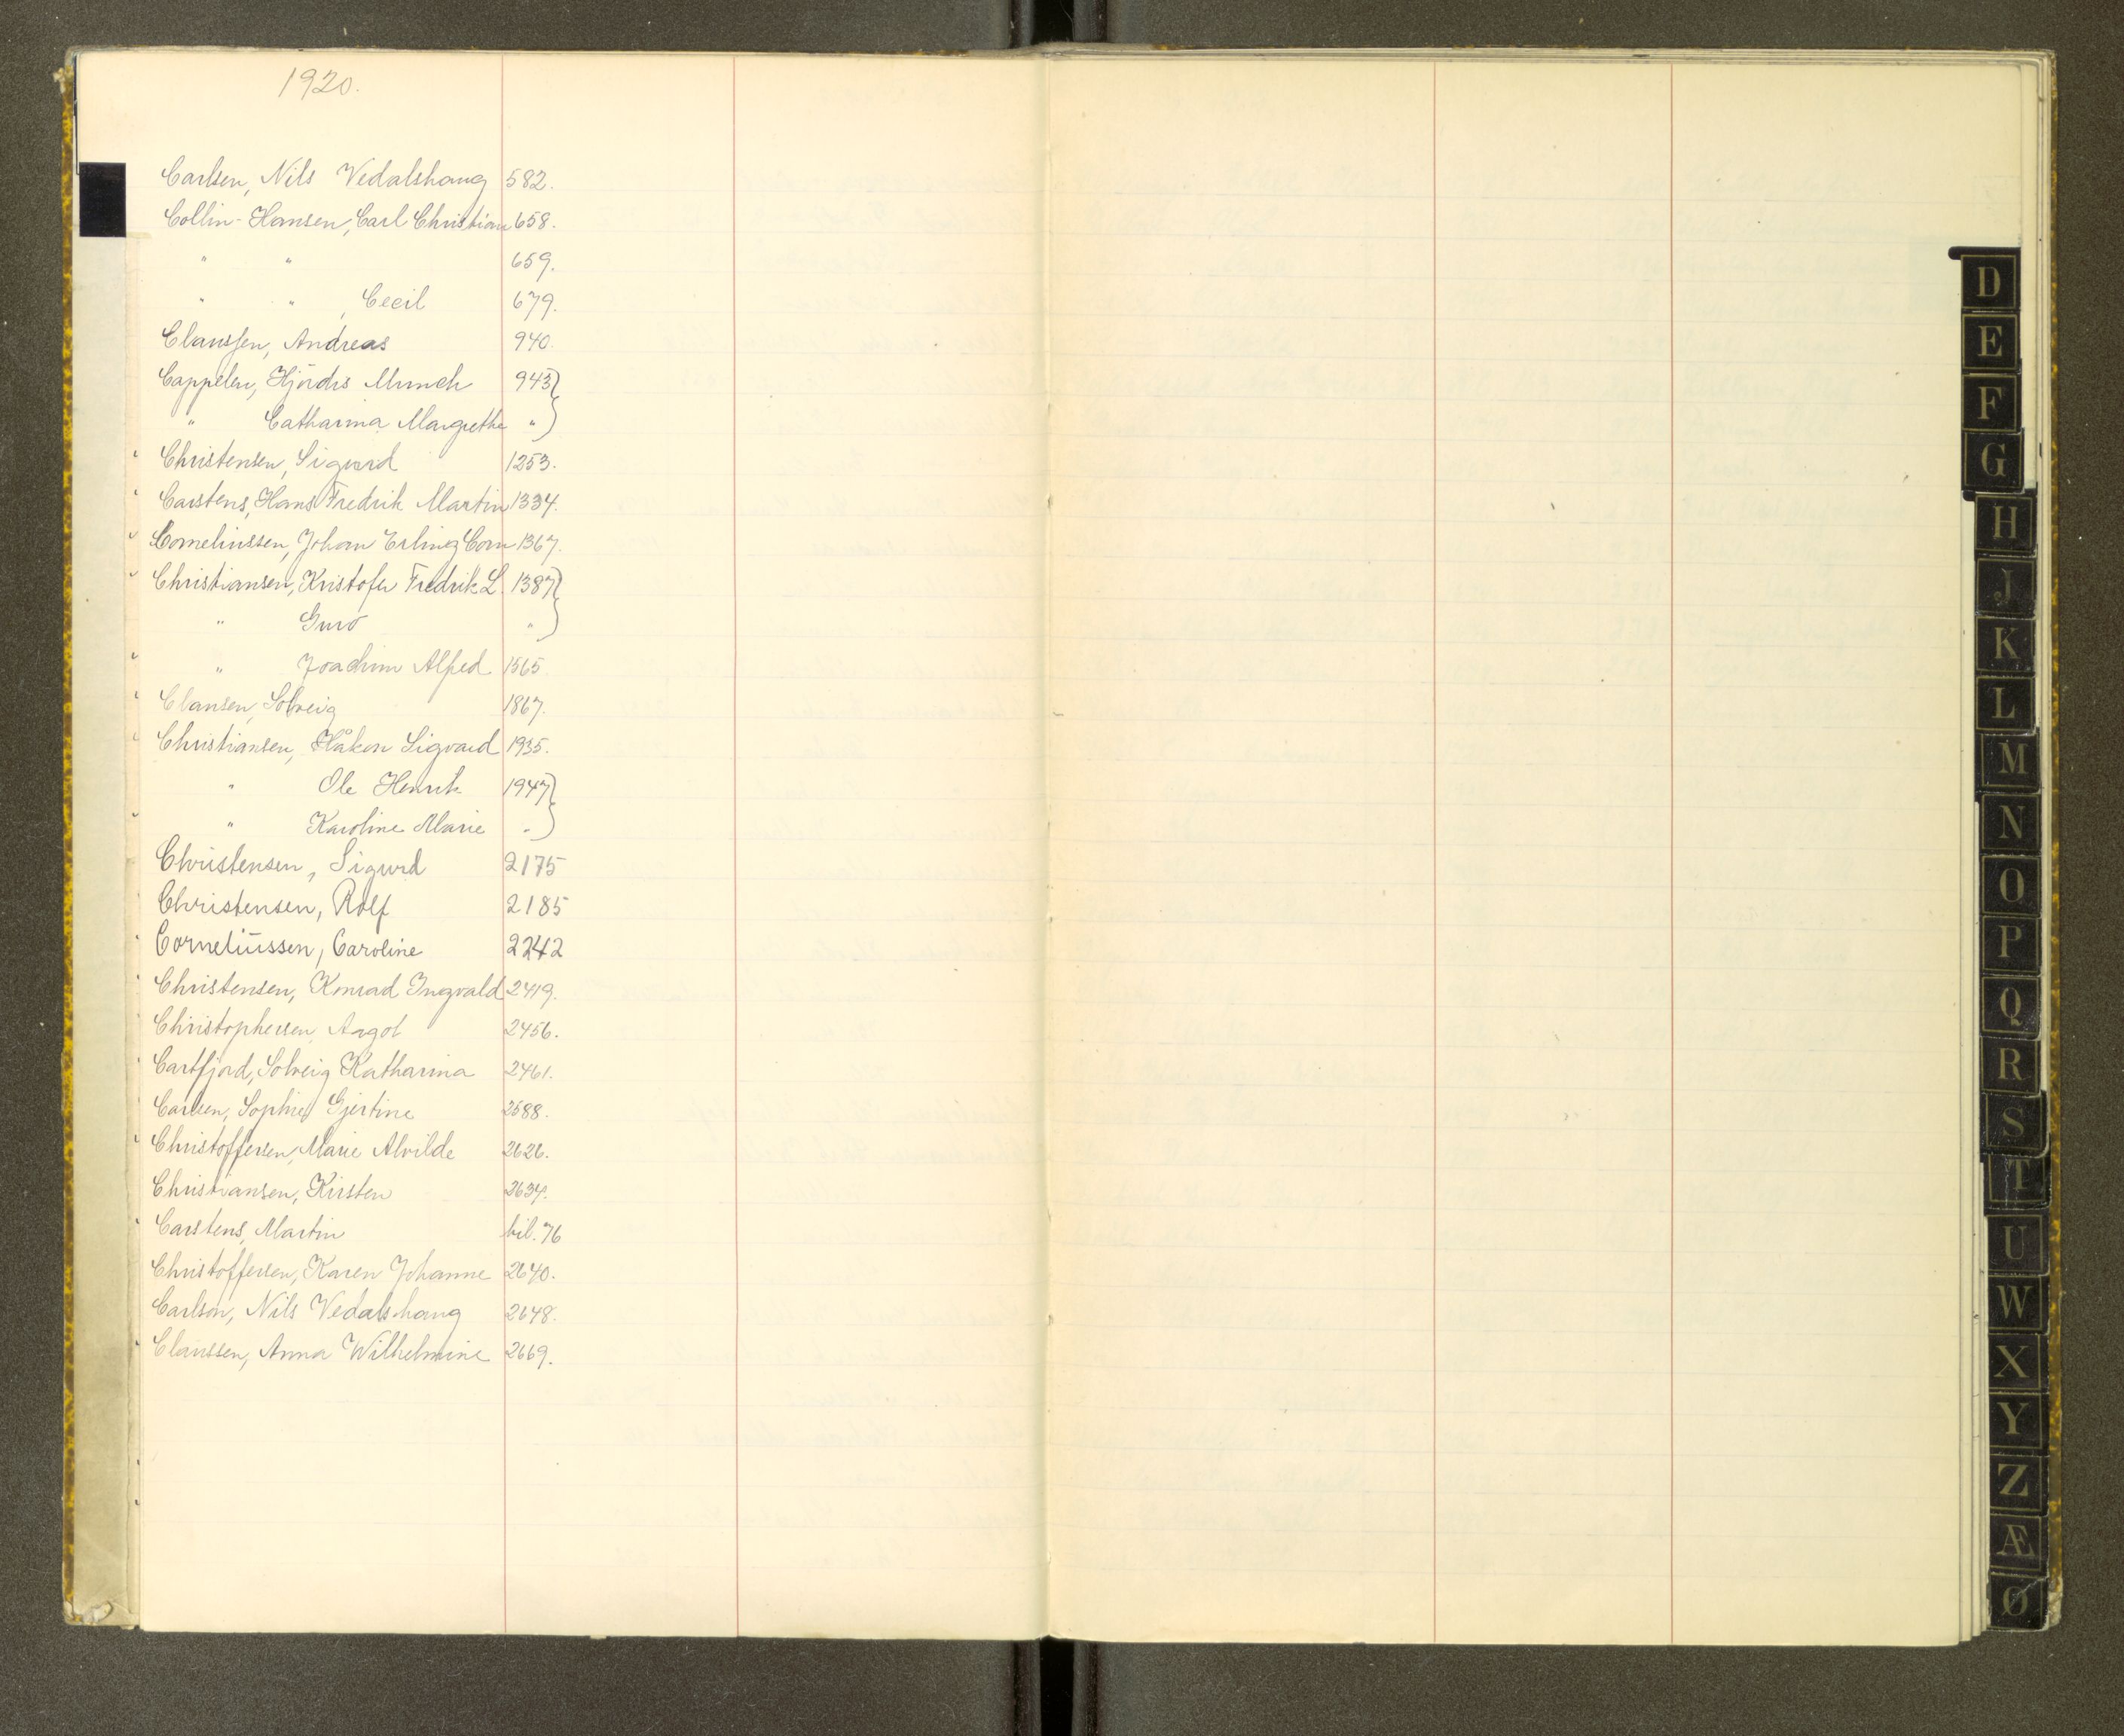 1920.
Carlsen, Nils Vedalshaug 582.
Collin-Hansen, Carl Christian 658.
" " 659.
" " , Cecil 679.
Claussen, Andreas 940.
Cappelen, Hjördis Munch 943 }
" Catharina Margrethe " }
Christensen, Sigurd 1253.
Carstens, Hans Fredrik Martin 1334.
Corneliussen, Johan Erling Corn 1367.
Christiansen, Kristofer Fredrik L. 1387 }
" Guro " }
" Joachim Alfred 1565
Clausen, Solveig 1867.
Christiansen, Håkon Sigvard 1935.
" Ole Henrik 1947 }
" Karoline Marie " }
Christensen, Sigurd 2175
Christensen, Rolf 2185
Corneliussen, Caroline 2242
Christensen, Konrad Ingvald 2419.
Christophersen, Aagot 2456.
Cartfjord, Solveig Katharina 2461.
Carlsen, Sophie Gjertine 2588.
Christoffersen, Marie Alvilde 2626.
Christiansen, Kirsten 2634.
Carstens, Martin bil. 76
Christoffersen, Karen Johanne 2640.
Carlson, Nils Vedalshaug 2648.
Claussen, Anna Wilhelmine 2669.
D
E
F
G
H
J
K
L
M
N
O
P
Q
R
S
T
U
W
X
Y
Z
Æ
Ø